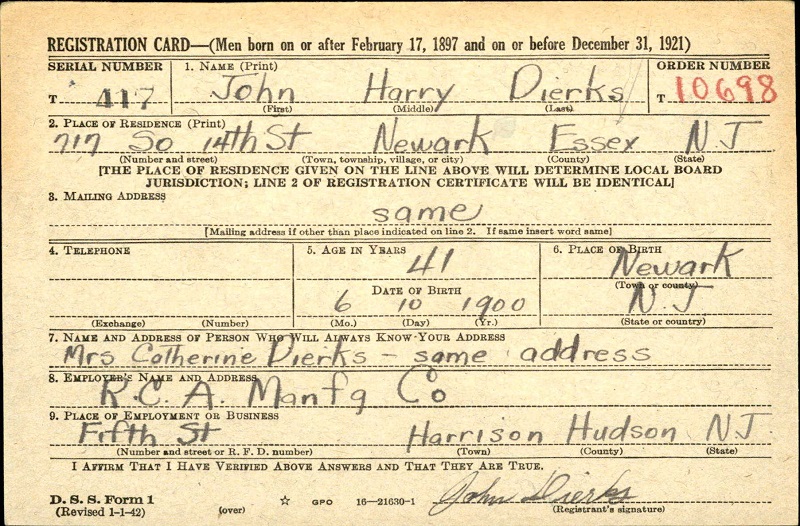 REGISTRATION CARD—(Men born on or after February 17, 1897 and on or before December 31, 1921)
SERIAL NUMBER 1. NAME (Print) ORDER NUMBER
T 417 John Harry Dierks T 10698
(First) (Middle) (Last)
2. PLACE OF RESIDENCE (Print)
717 So 14th St Newark Essex N J
(Number and street) (Town, township, village, or city) (County) (State)
[THE PLACE OF RESIDENCE GIVEN ON THE LINE ABOVE WILL DETERMINE LOCAL BOARD
JURISDICTION; LINE 2 OF REGISTRATION CERTIFICATE WILL BE IDENTICAL]
3. MAILING ADDRESS
same
[Mailing address if other than place indicated on line 2. If same insert word same]
4. TELEPHONE 5. AGE IN YEARS 6. PLACE OF BIRTH
41 Newark
DATE OF BIRTH (Town or county)
6 10 1900 N. J
(Exchange) (Number) (Mo.) (Day) (Yr.) (State or country)
7. NAME AND ADDRESS OF PERSON WHO WILL ALWAYS KNOW YOUR ADDRESS
Mrs Catherine Dierks - same address
8. EMPLOYER'S NAME AND ADDRESS
R.C.A. Manfg Co
9. PLACE OF EMPLOYMENT OR BUSINESS
Fifth St Harrison Hudson N J
(Number and street or R. F. D. number) (Town) (County) (State)
I AFFIRM THAT I HAVE VERIFIED ABOVE ANSWERS AND THAT THEY ARE TRUE.
D. S. S. Form 1 John Dierks
(Revised 1-1-42) (over) ☆ GPO 16—21630-1 (Registrant's signature)